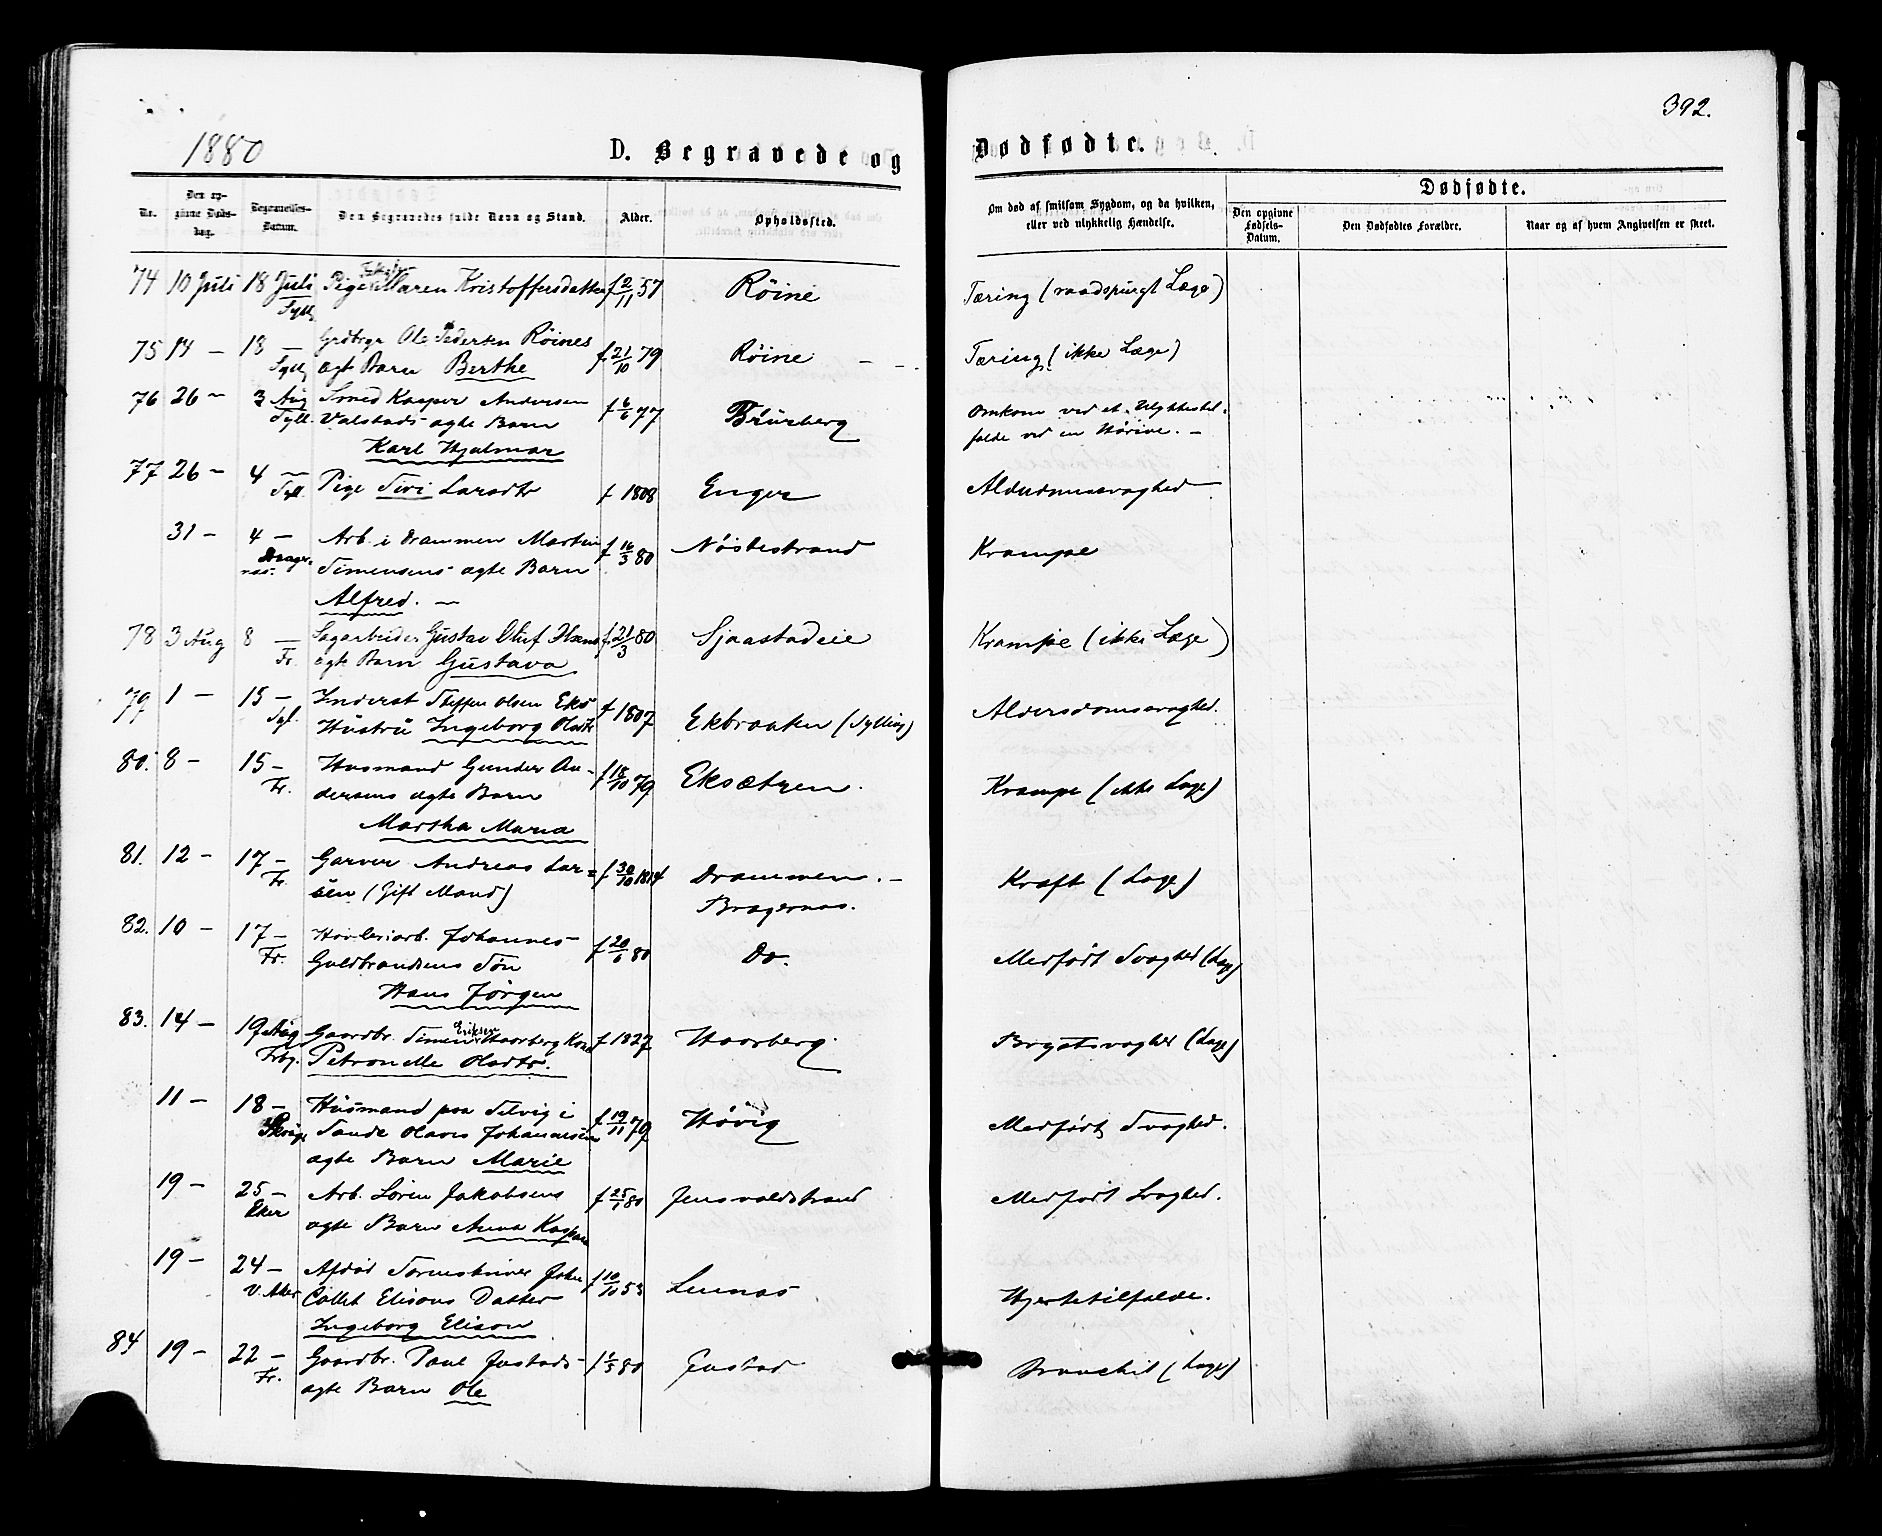 392.
1880
D. Begravede og Dødfødte.
Nr.
Den opgivne Dødsdag.
Begravelses-Datum.
Den Begravedes fulde Navn og Stand.
Alder.
Opholdssted.
Om død af smitsom Sygdom, og da hvilken, eller ved ulykkelig Hændelse.
Dødfødte.
Den opgivne Fødsels-Datum.
Den Dødfødtes Forældre.
Naar og af hvem Angivelsen er skeet.
74 10 Juli 18 Juli Pige Maren Kristoffersdatter f 2/11 57 Röine Tæring (raadspurgt Læge)
75 14 – 18 – Grdbrgr Ole Pedersen Röines f. 21/10 79 Röine – Tæring (ikke Læge)
Syll ægte Barn Berthe
76 26 – 3 Aug Smed Kasper Andersen f 6/6 77 Omkom ved et Ulykkestil-
Syll. Valstads ægte Barn fælde ved en
Karl Hjalmar
77 26 – 4 – Pige Siri Larsdtr f 1808 Enger Alderdomssvaghed
Syll.
31 – 4 – Arb. i Drammen Martin f 16/3 80 Nöstestrand Krampe
Simensens ægte Barn
Alfred. –
78 3 Aug 8 – Sagarbeider Gustav Oluf Hans f. 21/3 80 Sjaastadeie Krampe (ikke Læge)
Fr. ægte Barn Gustava
79 1 – 15 – Inderst Steffen Olsen Eks f 1807 Ekbraaten (Sylling) Aldersdomssvaghed.
Syl. Hustru Ingeborg Olsdtr
80. 8 – 15 – Husmand Gunder An- f 18/10 79 Eksætren. Krampe (ikke Læge)
Fr. dersens ægte Barn
Martha Maria
81. 12 – 17 – Garver Andreas Lar- f 30/10 1814 Drammen. – Kræft (Læge)
Fr. sen (Gift Mand) Bragernæs.
82. 10 – 17 – Johannes f 20/6 80 Do. Medfødt Svaghed (Læge)
Fr. Guldbrandsens Søn
Hans Jörgen
83. 14 – 19 Aug Gaardbr. Simen Eriksen Haarberg Kone f 1827 Haarberg Brystsvaghed (Læge)
Frbg. Petronelle Olsdtr.
11 – 18 – Husmand paa Selvig i f 19/11 79 Hövig Medfødt Svaghed.
Sande Olaves Johannesens
ægte Barn Marie
19 – 25 – Arb. Sören Jakobsens f 25/ 80 Jensvoldstrand Medfødt Svaghed.
Eker ægte Barn Anna Kaspara
19 – 24 – Afdöd Sorenskriver John f 10/10 53 Linnæs Hjertetilfælde.
V. Aker Collet Elisons Datter
Ingeborg Elison
84 19 – 22 – Gaardbr. Paul Justads f 80 Justad Bronchit (Læge)
Fr. ægte Barn Ole